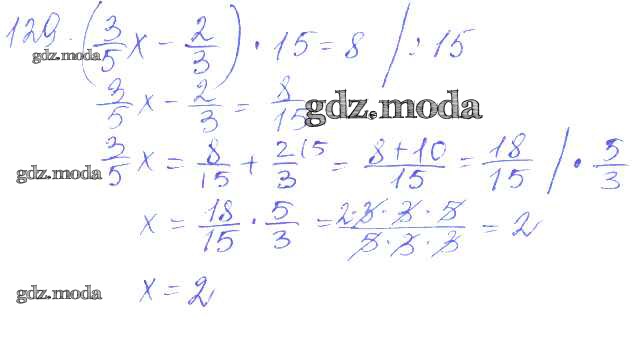 129. (3/5 x - 2/3) · 15 = 8 / : 15
gdz.moda
3/5 x - 2/3 = 8/15
gdz.moda
3/5 x = 8/15 + 2(5/3 = 8+10/15 = 18/15 / · 5/3
gdz.moda
x = 18/15 · 5/3 = 2·3·3·5/5·3·3 = 2
gdz.moda x = 2